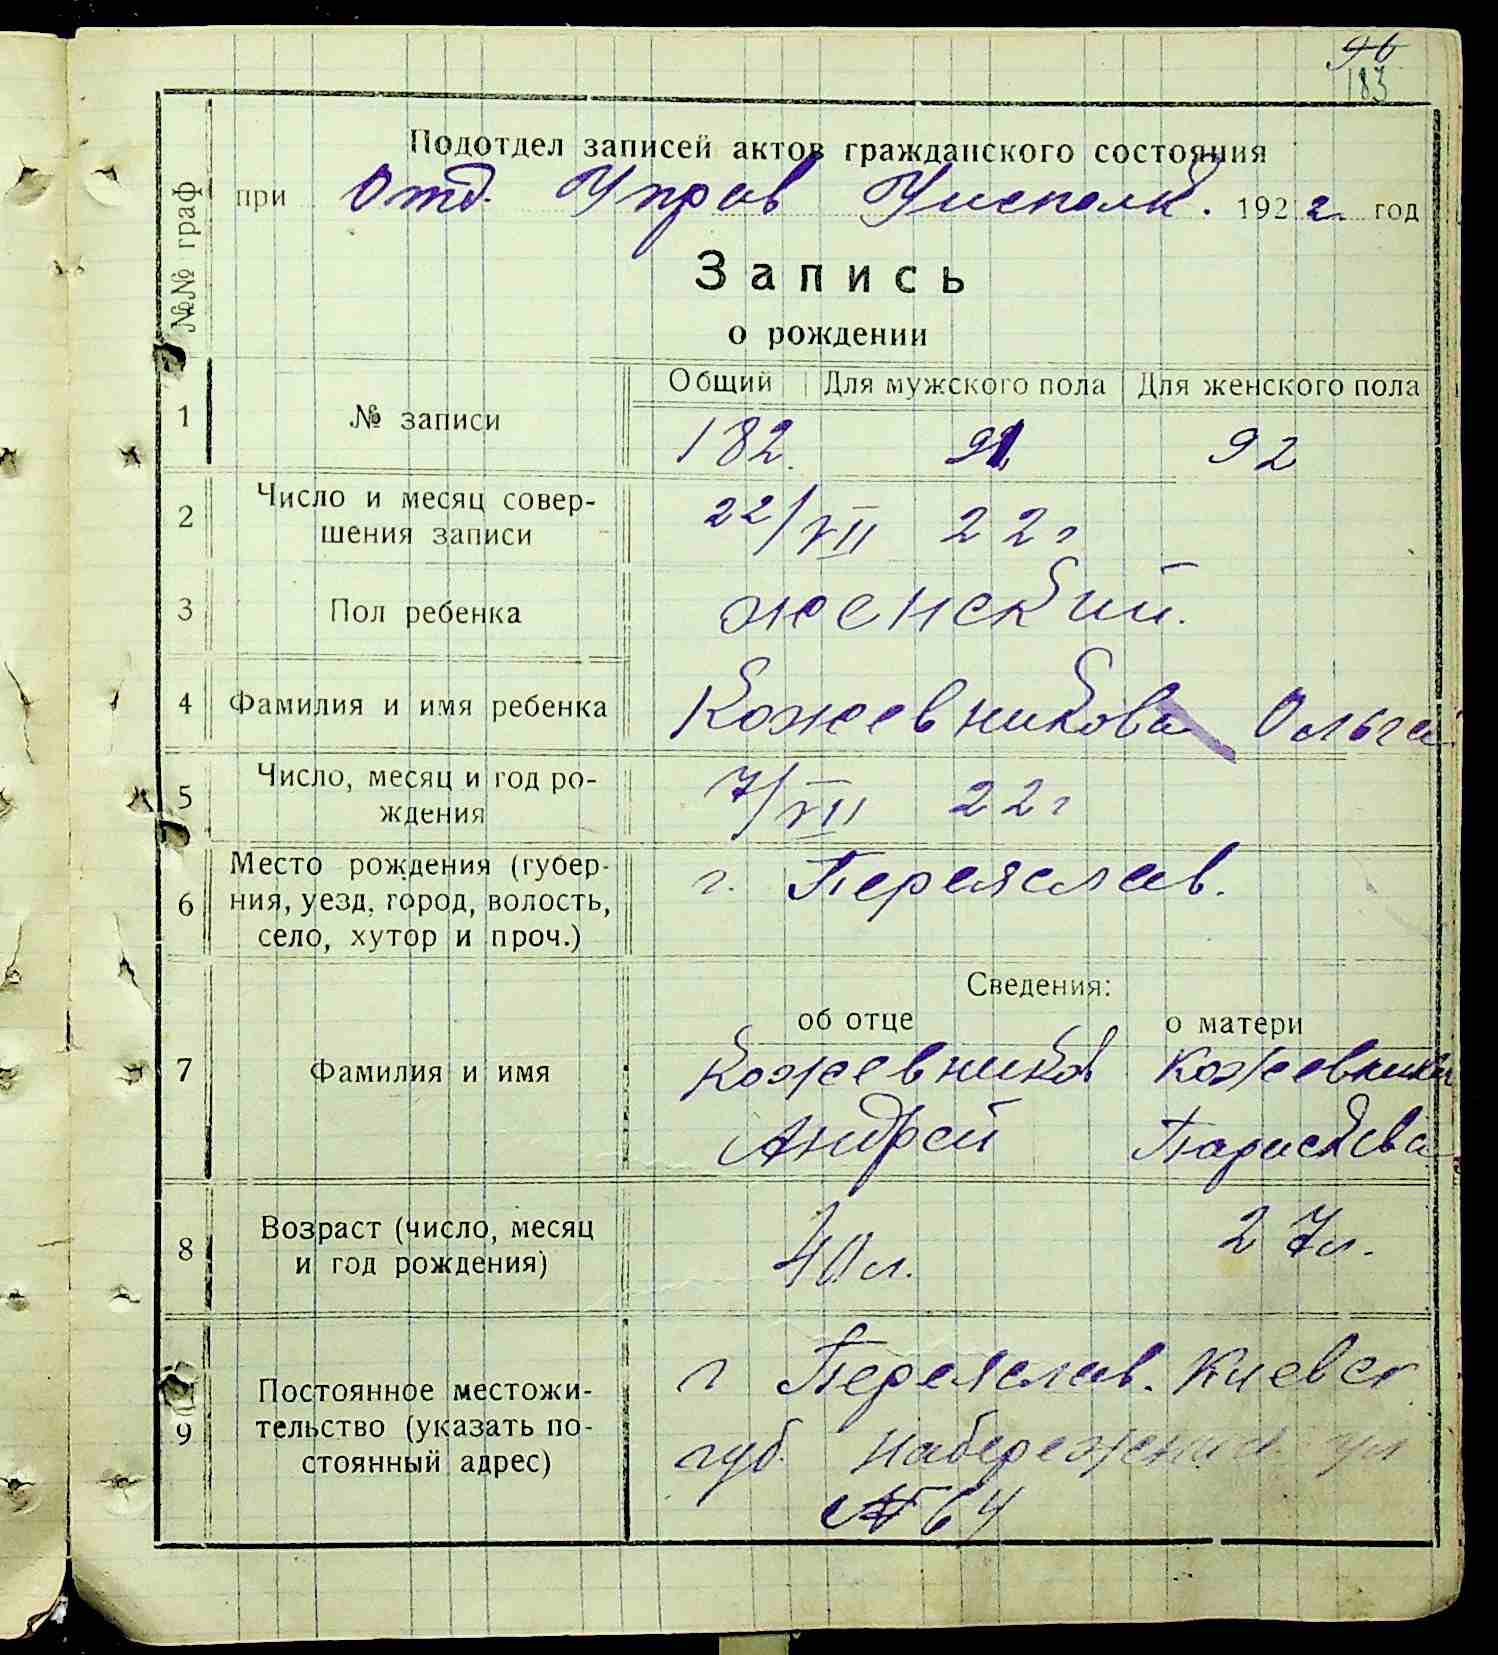 96
183
Подотдел записей актов гражданского состояния
при Отд. Управ Уисполк. 1922. год
№№ граф
Запись
о рождении
Общий Для мужского пола Для женского пола
1 № записи 182. 91 92
2 Число и месяц совер-
шения записи 22/VII 22 г
3 Пол ребенка женский.
4 Фамилия и имя ребенка Кожевникова Ольга
5 Число, месяц и год ро-
ждения 7/VII 22 г
6 Место рождения (губер-
ния, уезд, город, волость,
село, хутор и проч.) г. Переяслав.
Сведения:
об отце о матери
7 Фамилия и имя Кожевников
Андрей Парискева
8 Возраст (число, месяц
и год рождения) 40 л. 27 л.
9 Постоянное местожи-
тельство (указать по-
стоянный адрес) г Переяслав. Киевск
губ. Набережная ул
№ 64